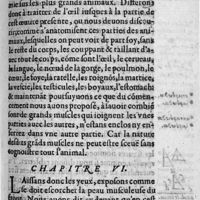 sur les plus grands animaux. Differons
donc à traitter de l'œil iusques à la partie de
cest œuure presente, ou nous deuons discou-
rir, comme s'anatomizent ces parties des ani-
maux, lesquelles on peut voir de par soy, sans
le reste du corps, les couppant & taillant d'a-
uec les corps, côme sont l'œil, le cerueau,
la langue, le nœud de la gorge, le poulmon, le
cœur, le foye, la ratelle, les roignôs, la martice,
la vescie, les testicules, les boyaux, l'estomach:
& maintenant poursuyuons ce que du cômen-
cement nous auons proposé, à sçauoir combien
sont de grands muscles qui ioignent les vnes
parties auec les autres, n'estans enclous ny ens-
errez dans vne autre partie. Car la nature
de ces grands muscles ne peut estre sceuë sans
cognoistre tout l'animal.
CHAPITRE VI.
Laissant donc les yeux, exposons comme
se doit escorcher la peau musculeuse du